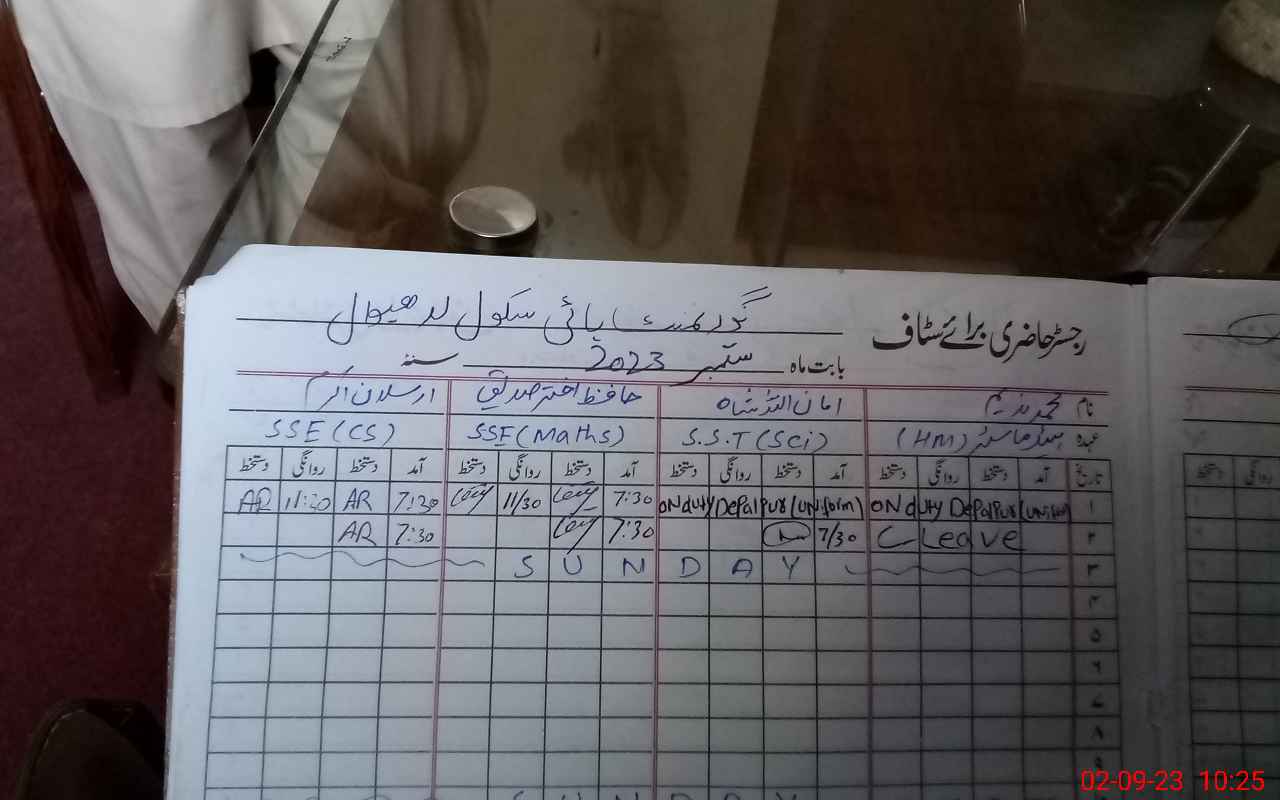 گورنمنٹ ہائی سکول لدھیوال
رجسٹر حاضری برائے سٹاف
بابت ماہ ستمبر 2023 سنہ
نام محمد ندیم امان اللہ شاہ حافظ اختر صدیق ارسلان اکرم
عہدہ ہیڈ ماسٹر (HM) S.S.T (Sci) SSE (Maths) SSE (CS)
تاریخ آمد دستخط روانگی دستخط آمد دستخط روانگی دستخط آمد دستخط روانگی دستخط آمد دستخط روانگی دستخط
۱ ON duty Depalpur (uniform) ON duty Depalpur (uniform) 7:30 11/30 7:30 AR 11:30 AR
۲ C Leave 7/30 7:30 7:30 AR
۳ SUNDAY
۴
۵
۶
۷
۸
۹
SUNDAY
دستخط روانگی
02-09-23 10:25